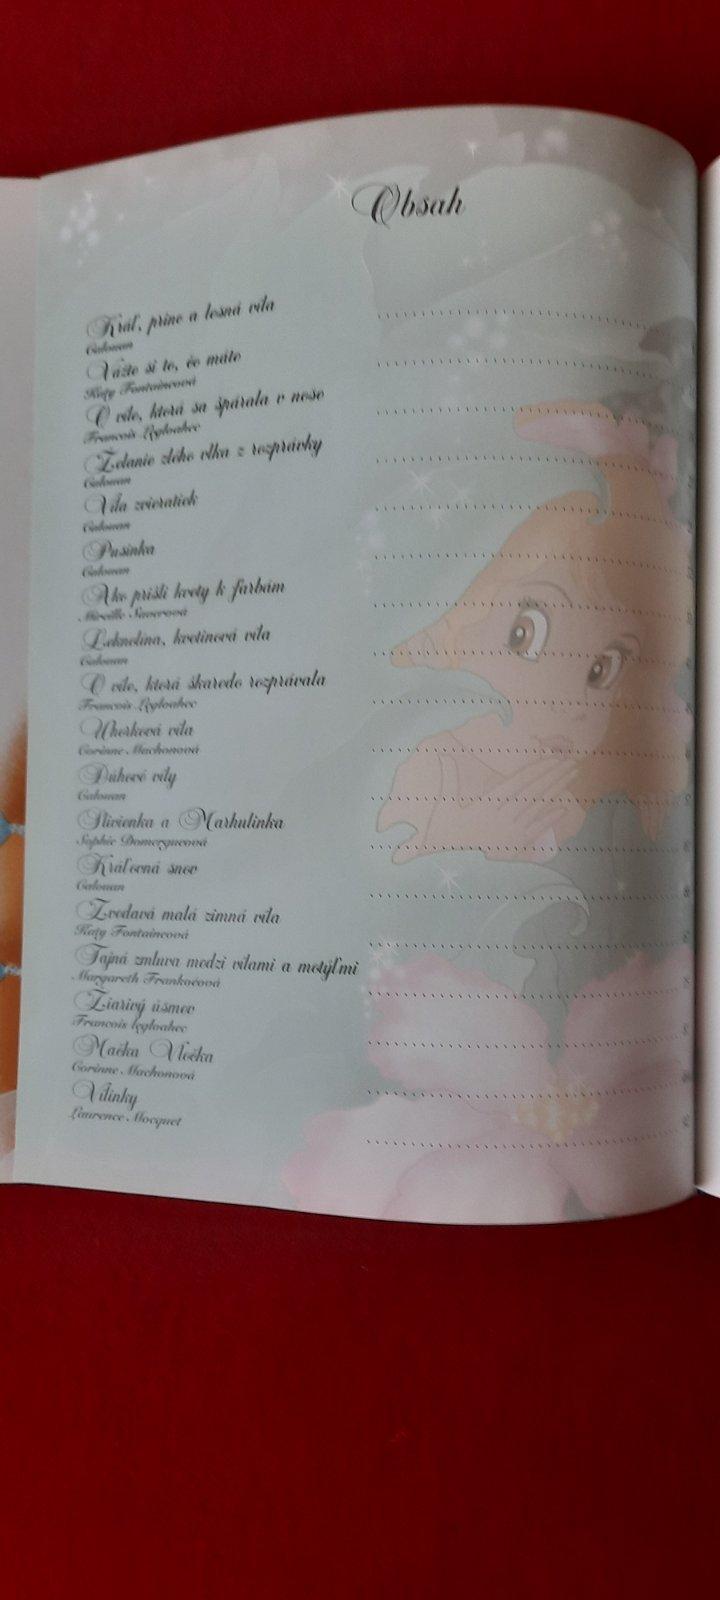 Obsah
Kráľ, princ a lesná víla
Calouan
Vážte si to, čo máte
Katy Fontaineová
O víle, ktorá sa špárala v nose
Francois Legloahec
Želanie zlého vlka z rozprávky
Calouan
Víla zvieratiek
Calouan
Pusinka
Calouan
Ako prišli kvety k farbám
Mireille Saverová
Leknolina, kvetinová víla
Calouan
O víle, ktorá škaredo rozprávala
Francois Legloahec
Uhorková víla
Corinne Machonová
Dúhové víly
Calouan
Slivienka a Marhulinka
Sophie Domergueová
Kráľovná snov
Calouan
Zvedavá malá zimná víla
Katy Fontaineová
Tajná zmluva medzi vílami a motýľmi
Margareth Frankačová
Žiarivý úsmev
Francois legloahec
Mačka Vločka
Corinne Machonová
Vílinky
Laurence Mocquet